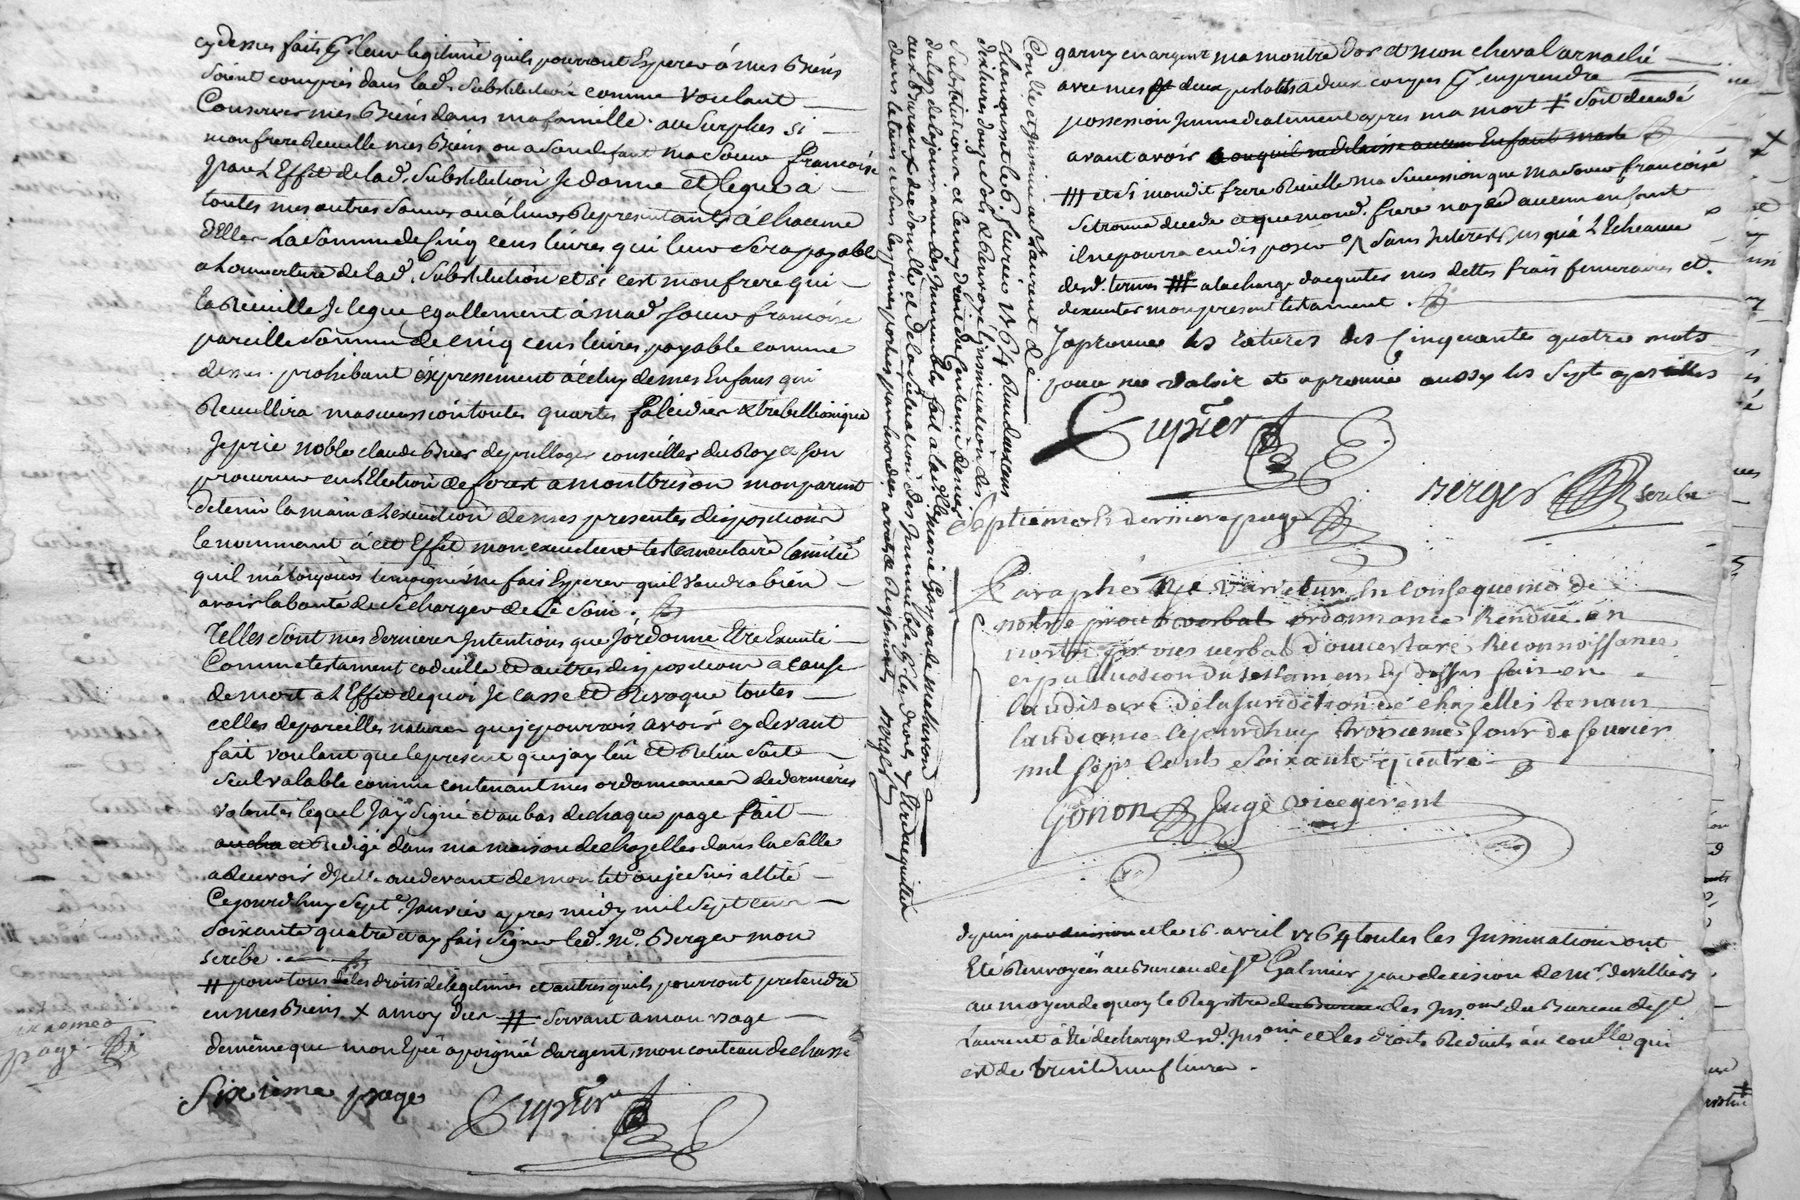 cy dessus faits p.r leur legitime quils pourront Esperer á mes Biens
soient compris dans lad. substitution comme voulant
Conserver mes Biens dans ma famille. au surplus si
mon frere Recuille mes Biens ou a son defaut ma soeur francoise
par L'Effet de lad. substitution Je donne et legue a
toutes mes autres soeurs ou á leurs Representants á chacune
d'Elles La somme de Cinq cens livres qui leur sera payable
a Louverture de lad. substitution et si c'est mon frere qui
la Recuille Je legue egallement á mad. soeur francoise
pareille somme de cinq cens livres payable comme
dessus. prohibant expressement á celuy de mes Enfans qui
Recuillira ma succession toutes quartes falcidies & trebellianique
Je prie noble claude Puer conseiller du Roy et son
procureur en L'Election de forest a montbrison mon parent
de tenir la main a L'execution de mes presentes dispositions
le nommant á cet Effet mon executeur testamentaire Lamitié
quil m'a toujours temoignée me fais Esperer quil voudra bien
avoir la bonté de se charger de ce soin.
Telles sont mes dernieres Intentions que J'ordonne Etre Executé
Comme testament codicille et autres disposition a cause
de mort a L'Effet de quoi Je casse et Revoque toutes
celles de pareilles nature que je pourrois avoir cy devant
fait voulant que le present que jay leu et Releu soit
seul valable comme contenant mes ordonnances de dernieres
volontes lequel J'ay signé et au bas de chaque page fait
et Redigé dans ma maison de chazelles dans la salle
au devant de mon lit ou je suis allité
Ce jourd'huy sept.e Janvier apres midy mil sept cens
soixante quatre et ay fais signer led. M.e Berger mon
scribe.
# pour tous les droits de legitimes et autres quils pourront pretendre
en mes Biens x a moy # servant a mon usage
de même que mon Epée a poignié d'argent, mon couteau de chasse
page
Sixieme page Cupier
Controlle et Insinué a St Laurent de
chamousset le 6. fevrier 1764 Reçu deux cens
dix livres douze sols & Renvoyé L'insinuation des
substitutions et le centieme denier
du legs de la jouissance des Immeubles fait a la d.lle marie Gasparde matheron
aux Bureaux de la situation des Immeubles & les droits y Etre acquittés
dans le tems et sous les peines portées par les arrets & Reglements Berger
garny en argent ma montre d'or et mon cheval arnaché
avec mes deux pistolets a deux coups p.r en prendre
possession Immediatement apres ma mort # soit decedé
avant avoir ou quil ne delaisse aucun Enfant male
## et si mondit frere Recuille ma succession que ma soeur francoise
se trouve decedé et que mond. frere n'ay eu aucun enfant
il ne pourra en disposer sans Interets jusqu'á L'Echeance
desd. termes ### a la charge d'acquiter mes dettes frais funeraires et
d'executer mon present testament.
J'aprouve les ratures des Cinquante quatre mots
pour ne valoir et aprouvé aussy les sept apostilles
Cupier
Berger scribe
Septieme & derniere page
Paraphé Ne Varietur En Consequence de
notre ordonnance Rendüe en
notre procés verbal d'ouverture Reconnoissance
et publication du testament cy dessus fait en
l'auditoire de la Juridiction de chazelles tenant
l'audiance le jourd'huy troisieme Jour de fevrier
mil sept cents soixante quatre
Gonon Juge vicegerent
Depuis et le 16. avril 1764 toutes les Insinuations ont
Eté Renvoyées au Bureau de St Galmier par decision de Mr. de villiers
au moyen de quoy le Registre des Ins.ons du Bureau de St.
Laurent á Eté dechargé desd. Ins.ons et les droits Reduits au qui
est de trente neuf livres.